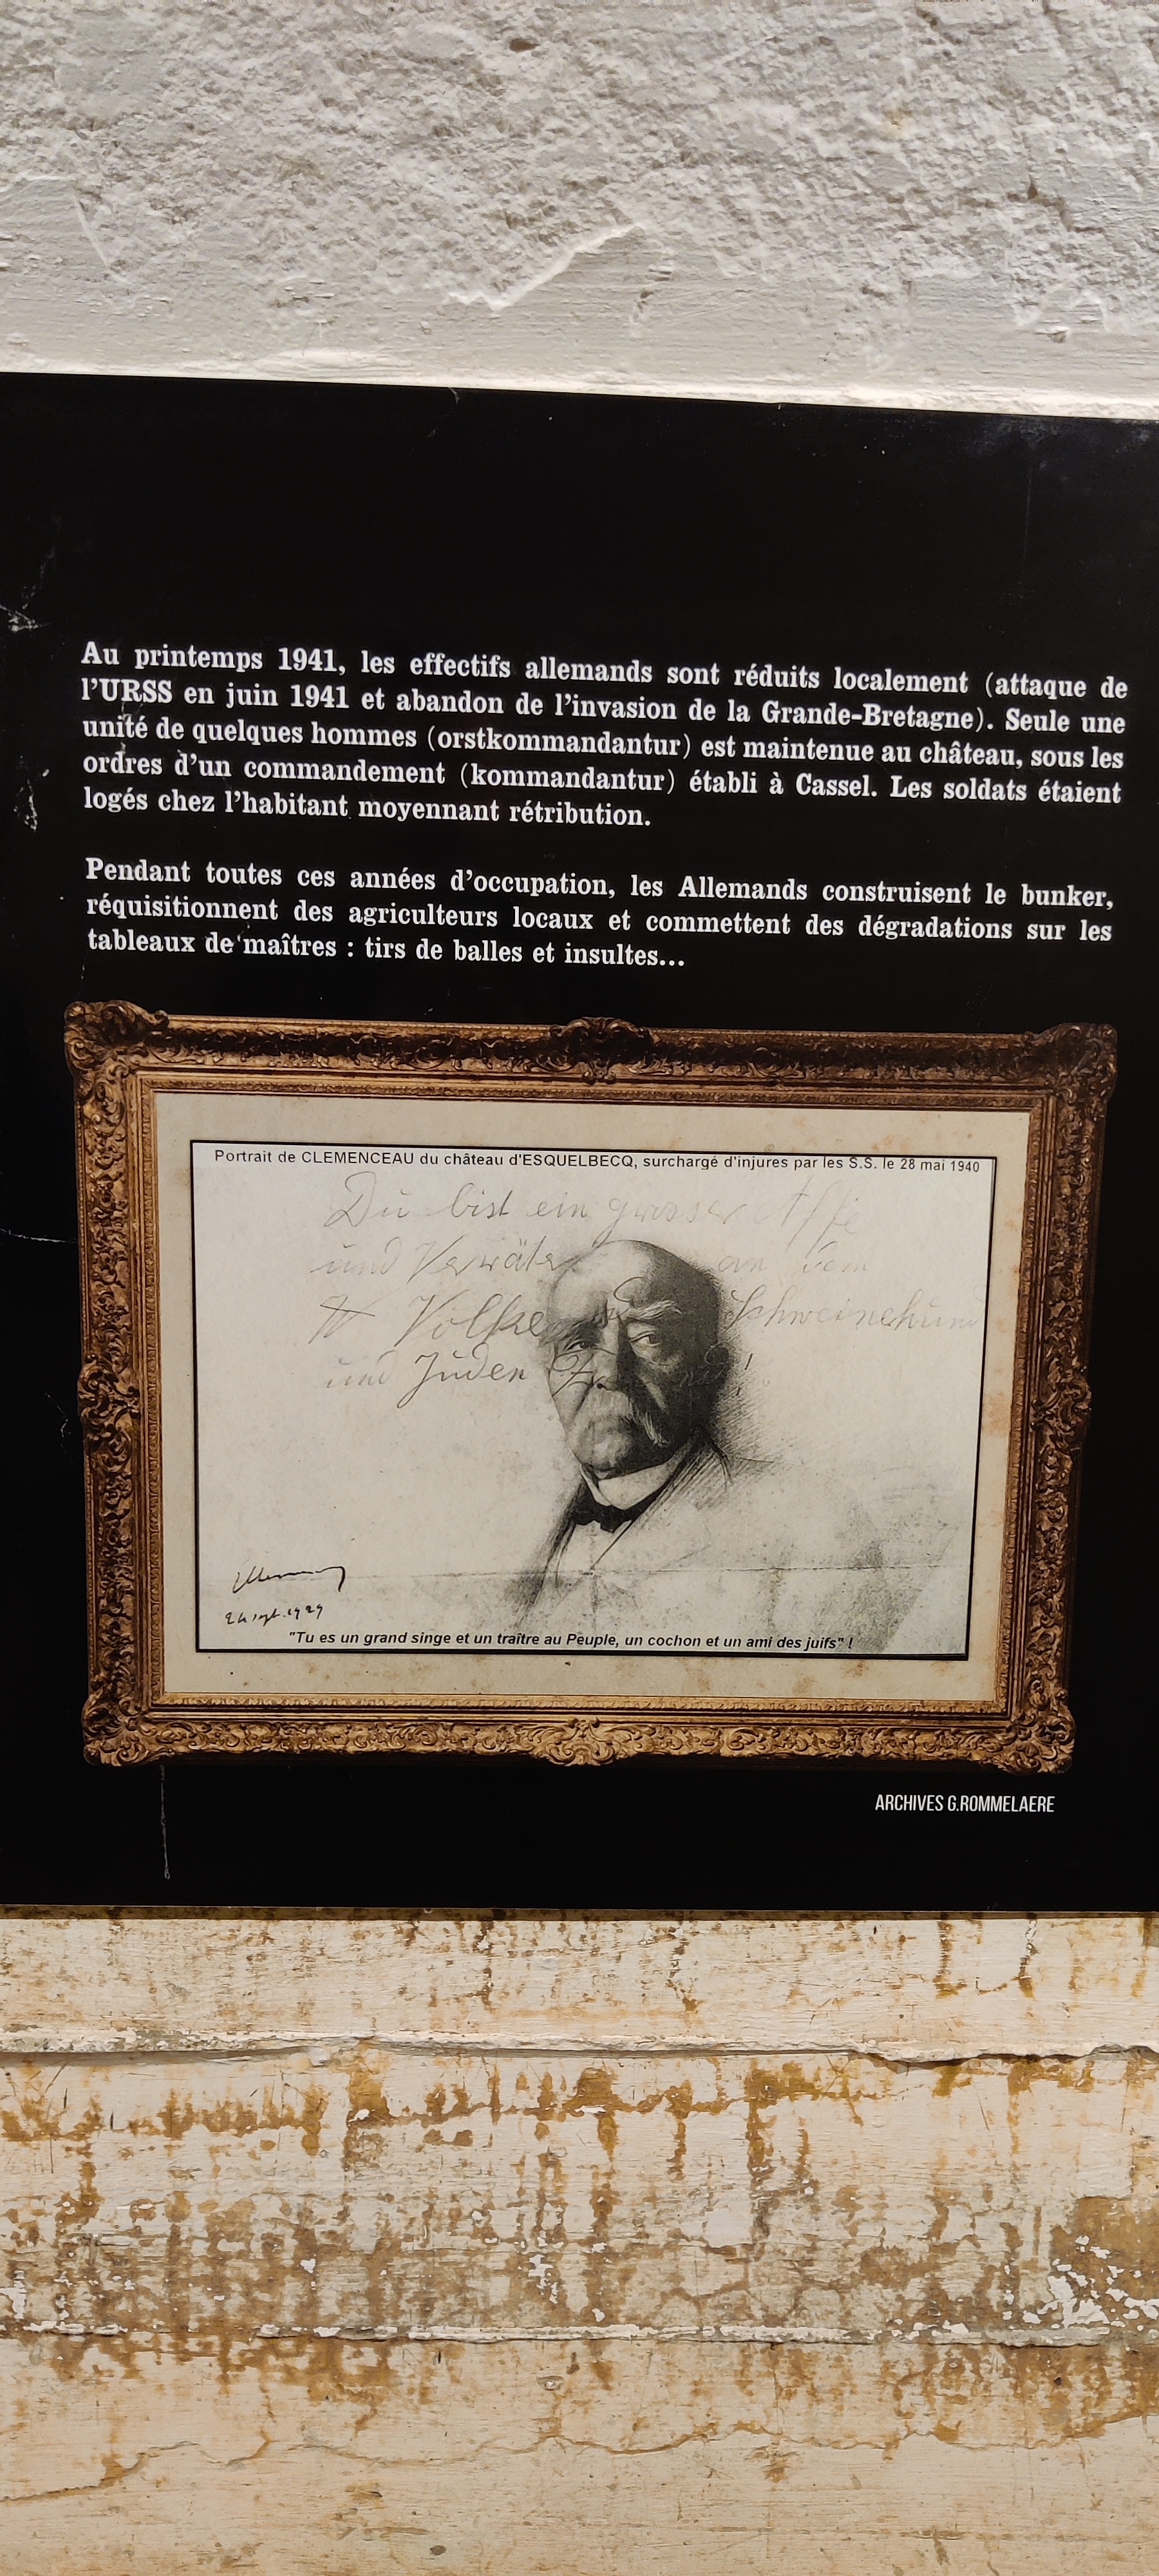 Au printemps 1941, les effectifs allemands sont réduits localement (attaque de
l'URSS en juin 1941 et abandon de l'invasion de la Grande-Bretagne). Seule une
unité de quelques hommes (orstkommandantur) est maintenue au château, sous les
ordres d'un commandement (kommandantur) établi à Cassel. Les soldats étaient
logés chez l'habitant moyennant rétribution.
Pendant toutes ces années d'occupation, les Allemands construisent le bunker,
réquisitionnent des agriculteurs locaux et commettent des dégradations sur les
tableaux de maîtres : tirs de balles et insultes...
Portrait de CLEMENCEAU du château d'ESQUELBECQ, surchargé d'injures par les S.S. le 28 mai 1940
Du bist ein grosser Affe
und Verräter an dem
Volke Schweinehund
und Juden
24 sept. 1929
"Tu es un grand singe et un traître au Peuple, un cochon et un ami des juifs" !
ARCHIVES G.ROMMELAERE